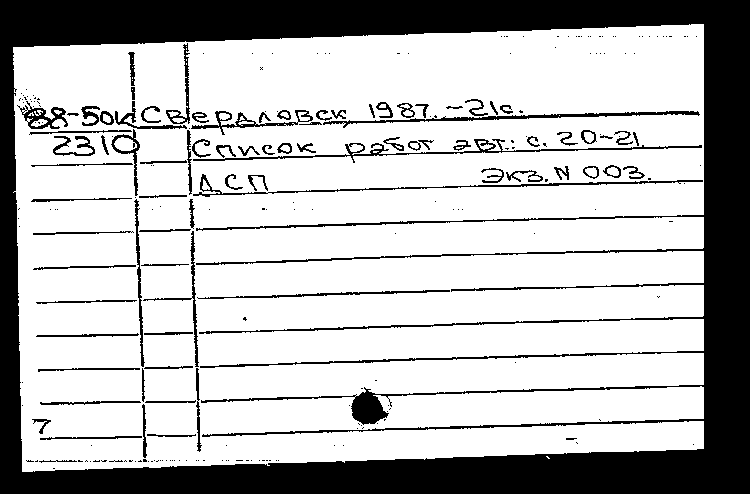 88-50к Свердловск, 1987. -21с.
2310 Список работ авт.: с. 20-21.
ДСП Экз. N 003.
7